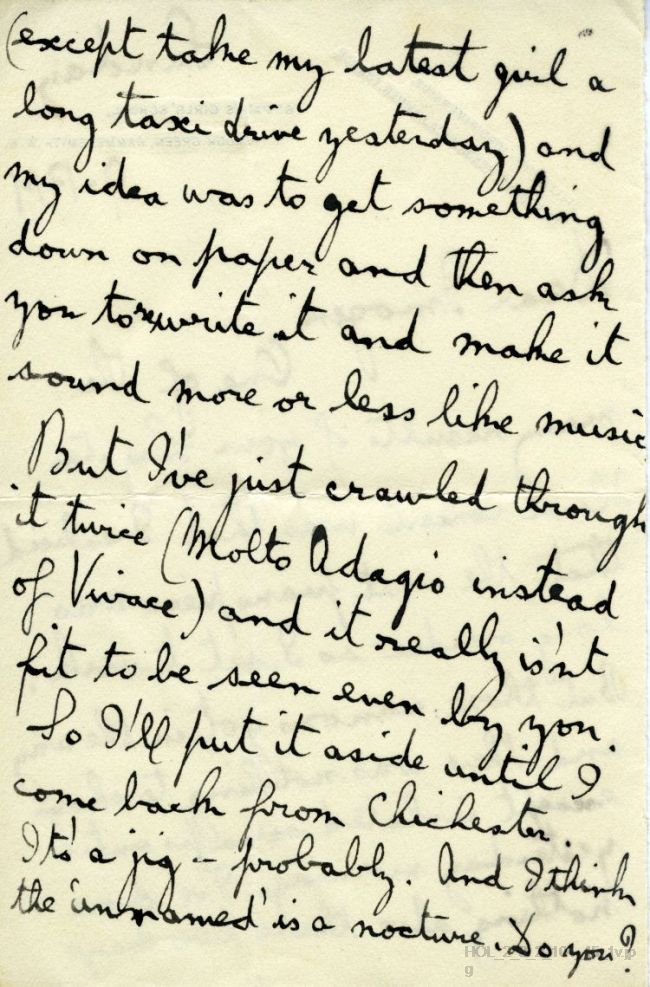 (except take my latest girl a
long taxi drive yesterday) and
my idea was to get something
down on paper and then ask
you to rewrite it and make it
sound more or less like music
But I've just crawled through
it twice (Molto Adagio instead
of Vivace) and it really isn't
fit to be seen even by you.
So I'll put it aside until I
come back from Chichester.
Its' a jig – probably. And I think
the 'unnamed' is a nocture. Do you?